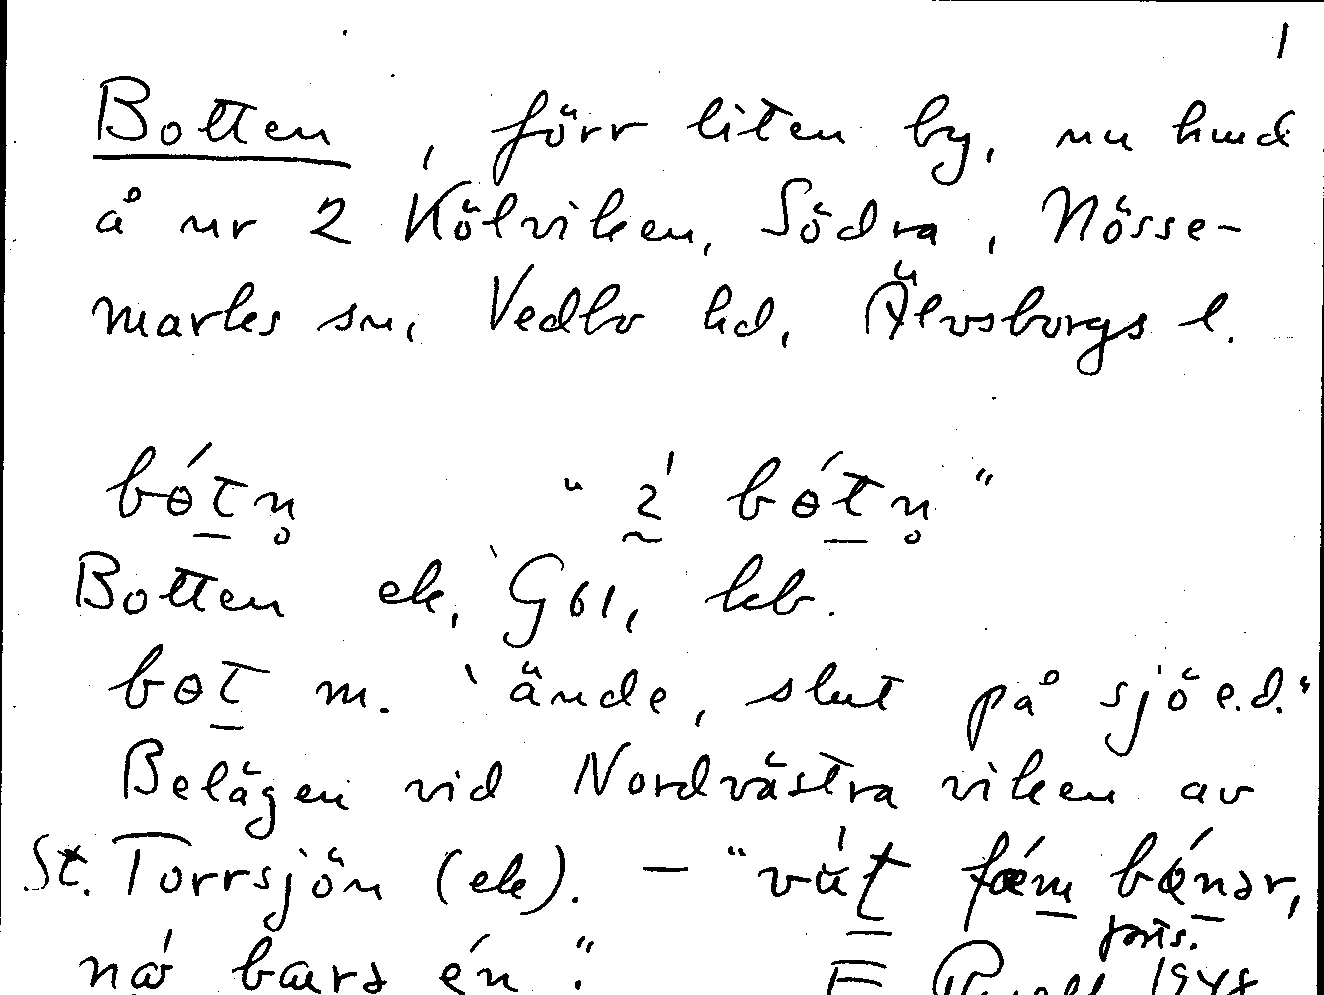 1
Botten, förr liten by, nu hmd
å nr 2 Kölviken, Södra, Nösse-
marks sn, Vedbo hd, Älvsborgs l.
bótn̥ " bótn̥ "
Botten ek, G61, kb.
bɵt m. `ände, slut på sjö e.d.'
Belägen vid Nordvästra viken av
St. Torrsjön (ek). – " fǽm
forts.
én." 1948